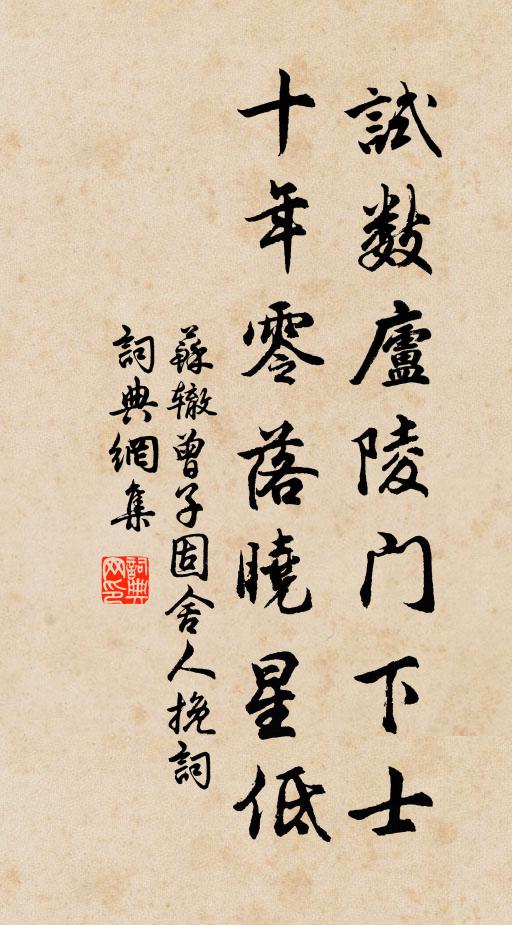 試數廬陵門下士
十年零落曉星低
蘇辙曾子固舍人挽詞
詞典網集
詞典网印